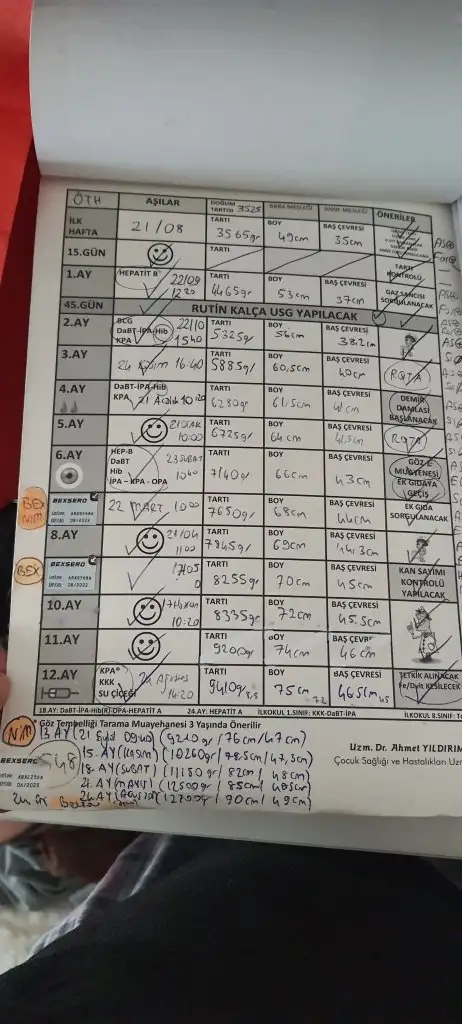 ÖTH AŞILAR DOĞUM TARTISI 3525 BABA MESLEĞİ ANNE MESLEĞİ ÖNERİLER
İLK HAFTA 21/08 TARTI 3565gr BOY 49cm BAŞ ÇEVRESİ 35cm
15.GÜN TARTI TARTI KONTROLÜ
1.AY HEPATİT B 22/09 12 20 TARTI 4465gr BOY 53cm BAŞ ÇEVRESİ 37cm GAZ SANCISI SORGULANACAK
45.GÜN RUTİN KALÇA USG YAPILACAK
2.AY BCG DaBT-İPA-Hib KPA 22/10 15 40 TARTI 5325gr BOY 56cm BAŞ ÇEVRESİ 38.2cm
3.AY 24 16:40 TARTI 5885gr BOY 60,5cm BAŞ ÇEVRESİ 40cm ROTA
4.AY DaBT-İPA-Hib KPA 21 Aralık 10:20 TARTI 6280gr BOY 61.5cm BAŞ ÇEVRESİ 41cm DEMİR DAMLASI BAŞLANACAK
5.AY 21 OCAK 10:00 TARTI 6725gr BOY 64cm BAŞ ÇEVRESİ 41,5cm ROTA
6.AY HEP-B DaBT Hib İPA – KPA - OPA 23 ŞUBAT 10 40 TARTI 7140gr BOY 66cm BAŞ ÇEVRESİ 43cm GÖZ MUAYENESİ EK GIDAYA GEÇİŞ
BEX NİM BEXSERO 22 MART 10 00 TARTI 7650gr BOY 68cm BAŞ ÇEVRESİ 44cm EK GIDA SORGULANACAK
8.AY 21/04 11 00 TARTI 7845gr BOY 69cm BAŞ ÇEVRESİ 44.3cm
BEX BEXSERO 17/05 TARTI 8255gr BOY 70cm BAŞ ÇEVRESİ 45cm KAN SAYIMI KONTROLÜ YAPILACAK
10.AY 10:20 TARTI 8335gr BOY 72cm BAŞ ÇEVRESİ 45.5cm
11.AY TARTI 9200gr BOY 74cm BAŞ ÇEVRESİ 46cm
12.AY KPA* KKK SU ÇİÇEĞİ 24 14:20 TARTI 9410gr BOY 75cm BAŞ ÇEVRESİ 46.5cm TETKİK ALINACAK Fe/Dvit KESİLECEK
18.AY: DaBT-İPA-Hib(R)-OPA-HEPATİT A 24.AY: HEPATİT A İLKOKUL 1.SINIF: KKK-DaBT-İPA İLKOKUL 8.SINIF:
* Göz Tembelliği Tarama Muayenehesi 3 Yaşında Önerilir
NİM 13.AY (21 Eylül 09:40) (9240gr / 76cm / 47cm)
BEXSERO 15.AY (KASIM) (10260gr / 78.5cm / 47,5cm) Uzm. Dr. Ahmet YILDIRIM
18.AY (ŞUBAT) (11150gr / 82cm / 48cm) Çocuk Sağlığı ve Hastalıkları Uz
21.AY (MAYIS) (12500gr / 85cm / 48.5cm)
24.AY (12700gr / 90cm / 49cm)